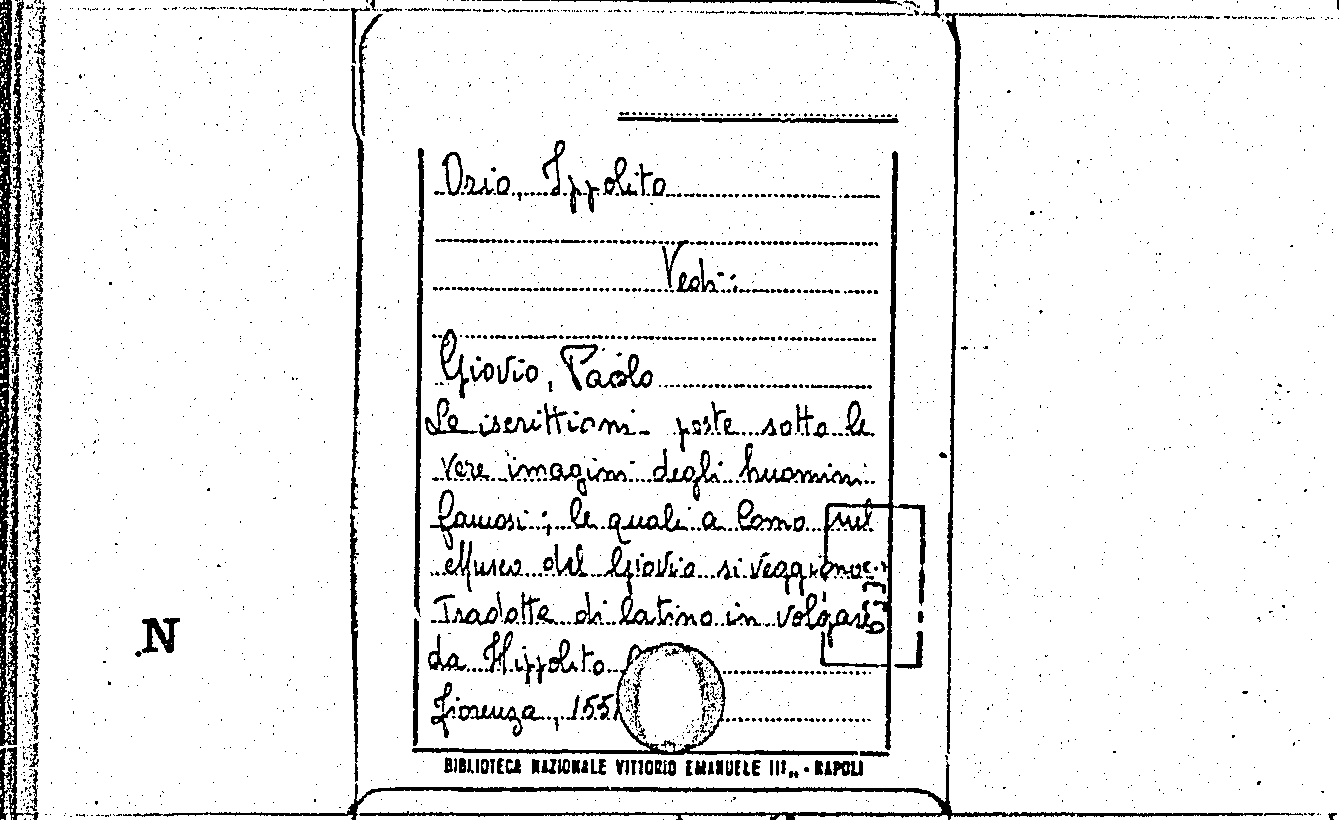 Orio, Ippolito
Vedi:
Giovio, Paolo
Le iscrittioni poste sotto le
vere imagini degli huomini
famosi; le quali a Como nel
Museo del Giovio si veggiono.
Tradotte di latino in volgare
da Hippolito
Fiorenza, 155
N
BIBLIOTECA NAZIONALE VITTORIO EMANUELE III„ - NAPOLI